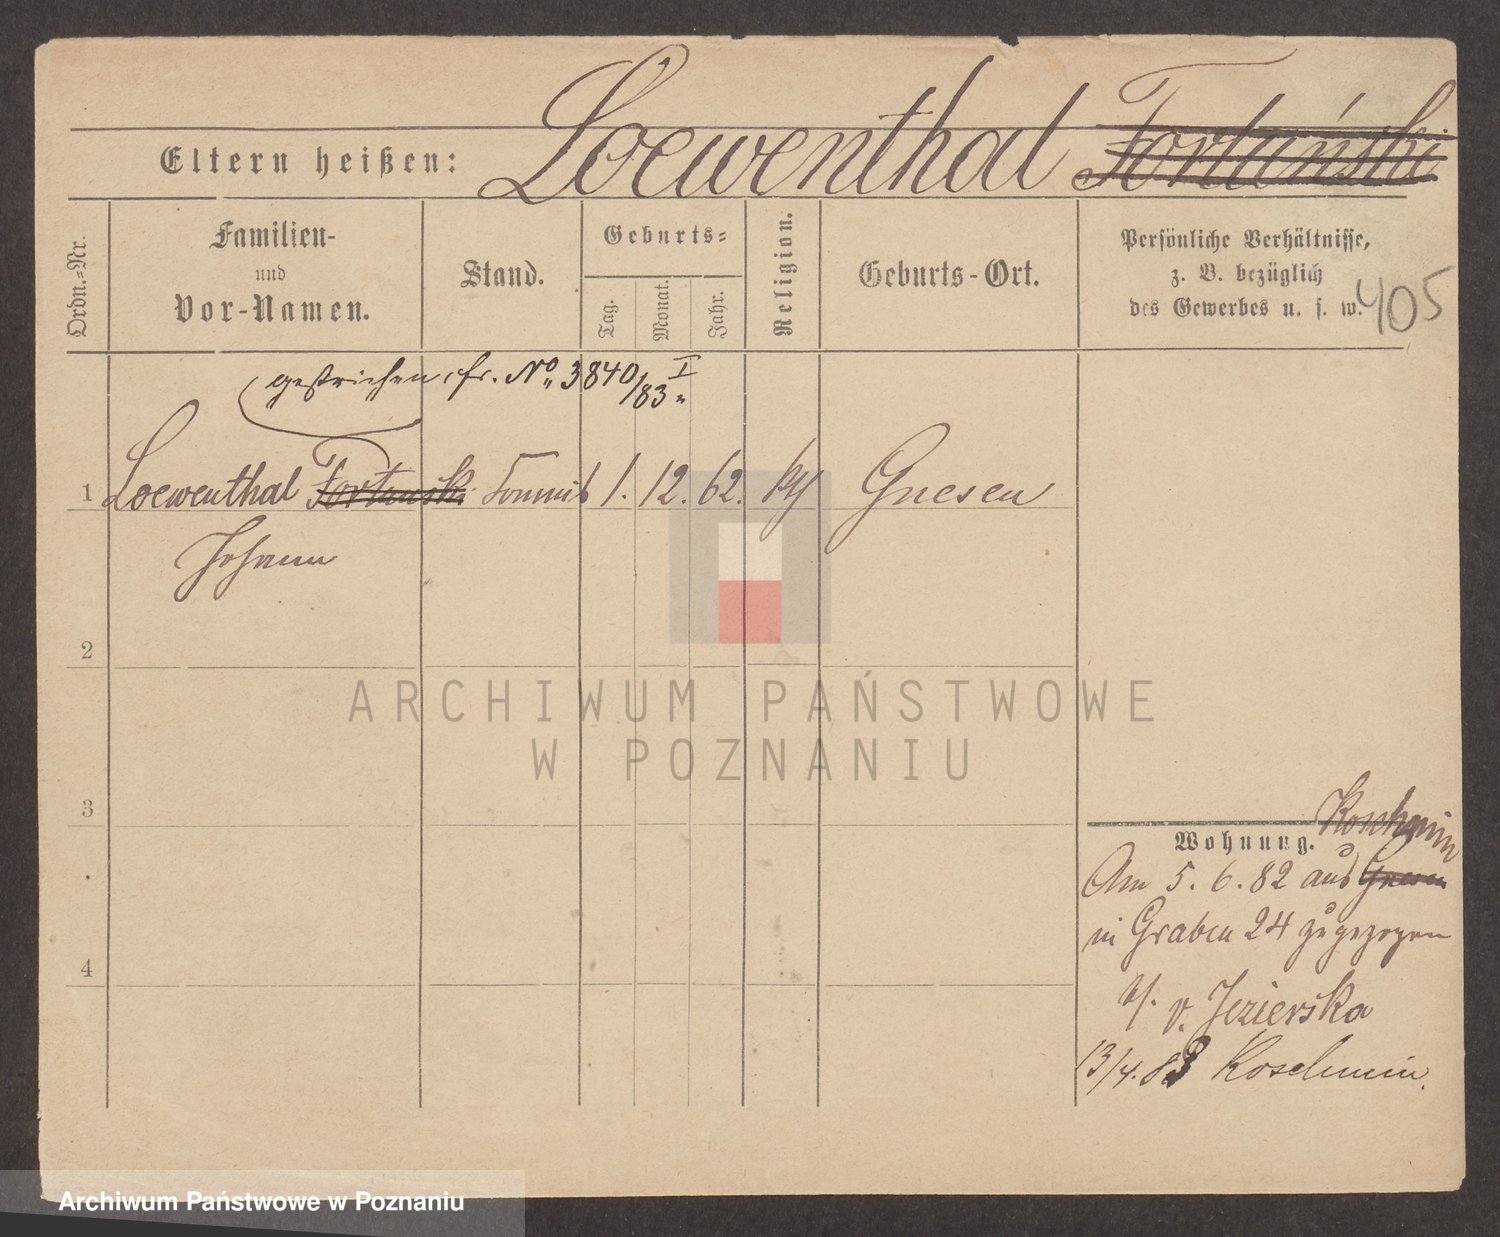 Loewenthal Fortański
Eltern heißen:
Ordn.-Nr.
Familien-
und
Vor-Namen.
Stand.
Geburts-
Tag.
Monat.
Jahr.
Religion.
Geburts-Ort.
Persönliche Verhältnisse,
z. B. bezüglich
des Gewerbes u. s. w.
405
gestrichen, cfr. No. 3840/83 I
1 Loewenthal Fortanski Commis 1. 12. 62. Gnesen
Johann
2
3
4
ARCHIWUM PAŃSTWOWE
W POZNANIU
Koschmin
Wohnung.
Am 5. 6. 82 aus Gnesen
in Graben 24 zugezogen
b/. v. Jezierska
13/4. 83 Koschmin.
Archiwum Państwowe w Poznaniu